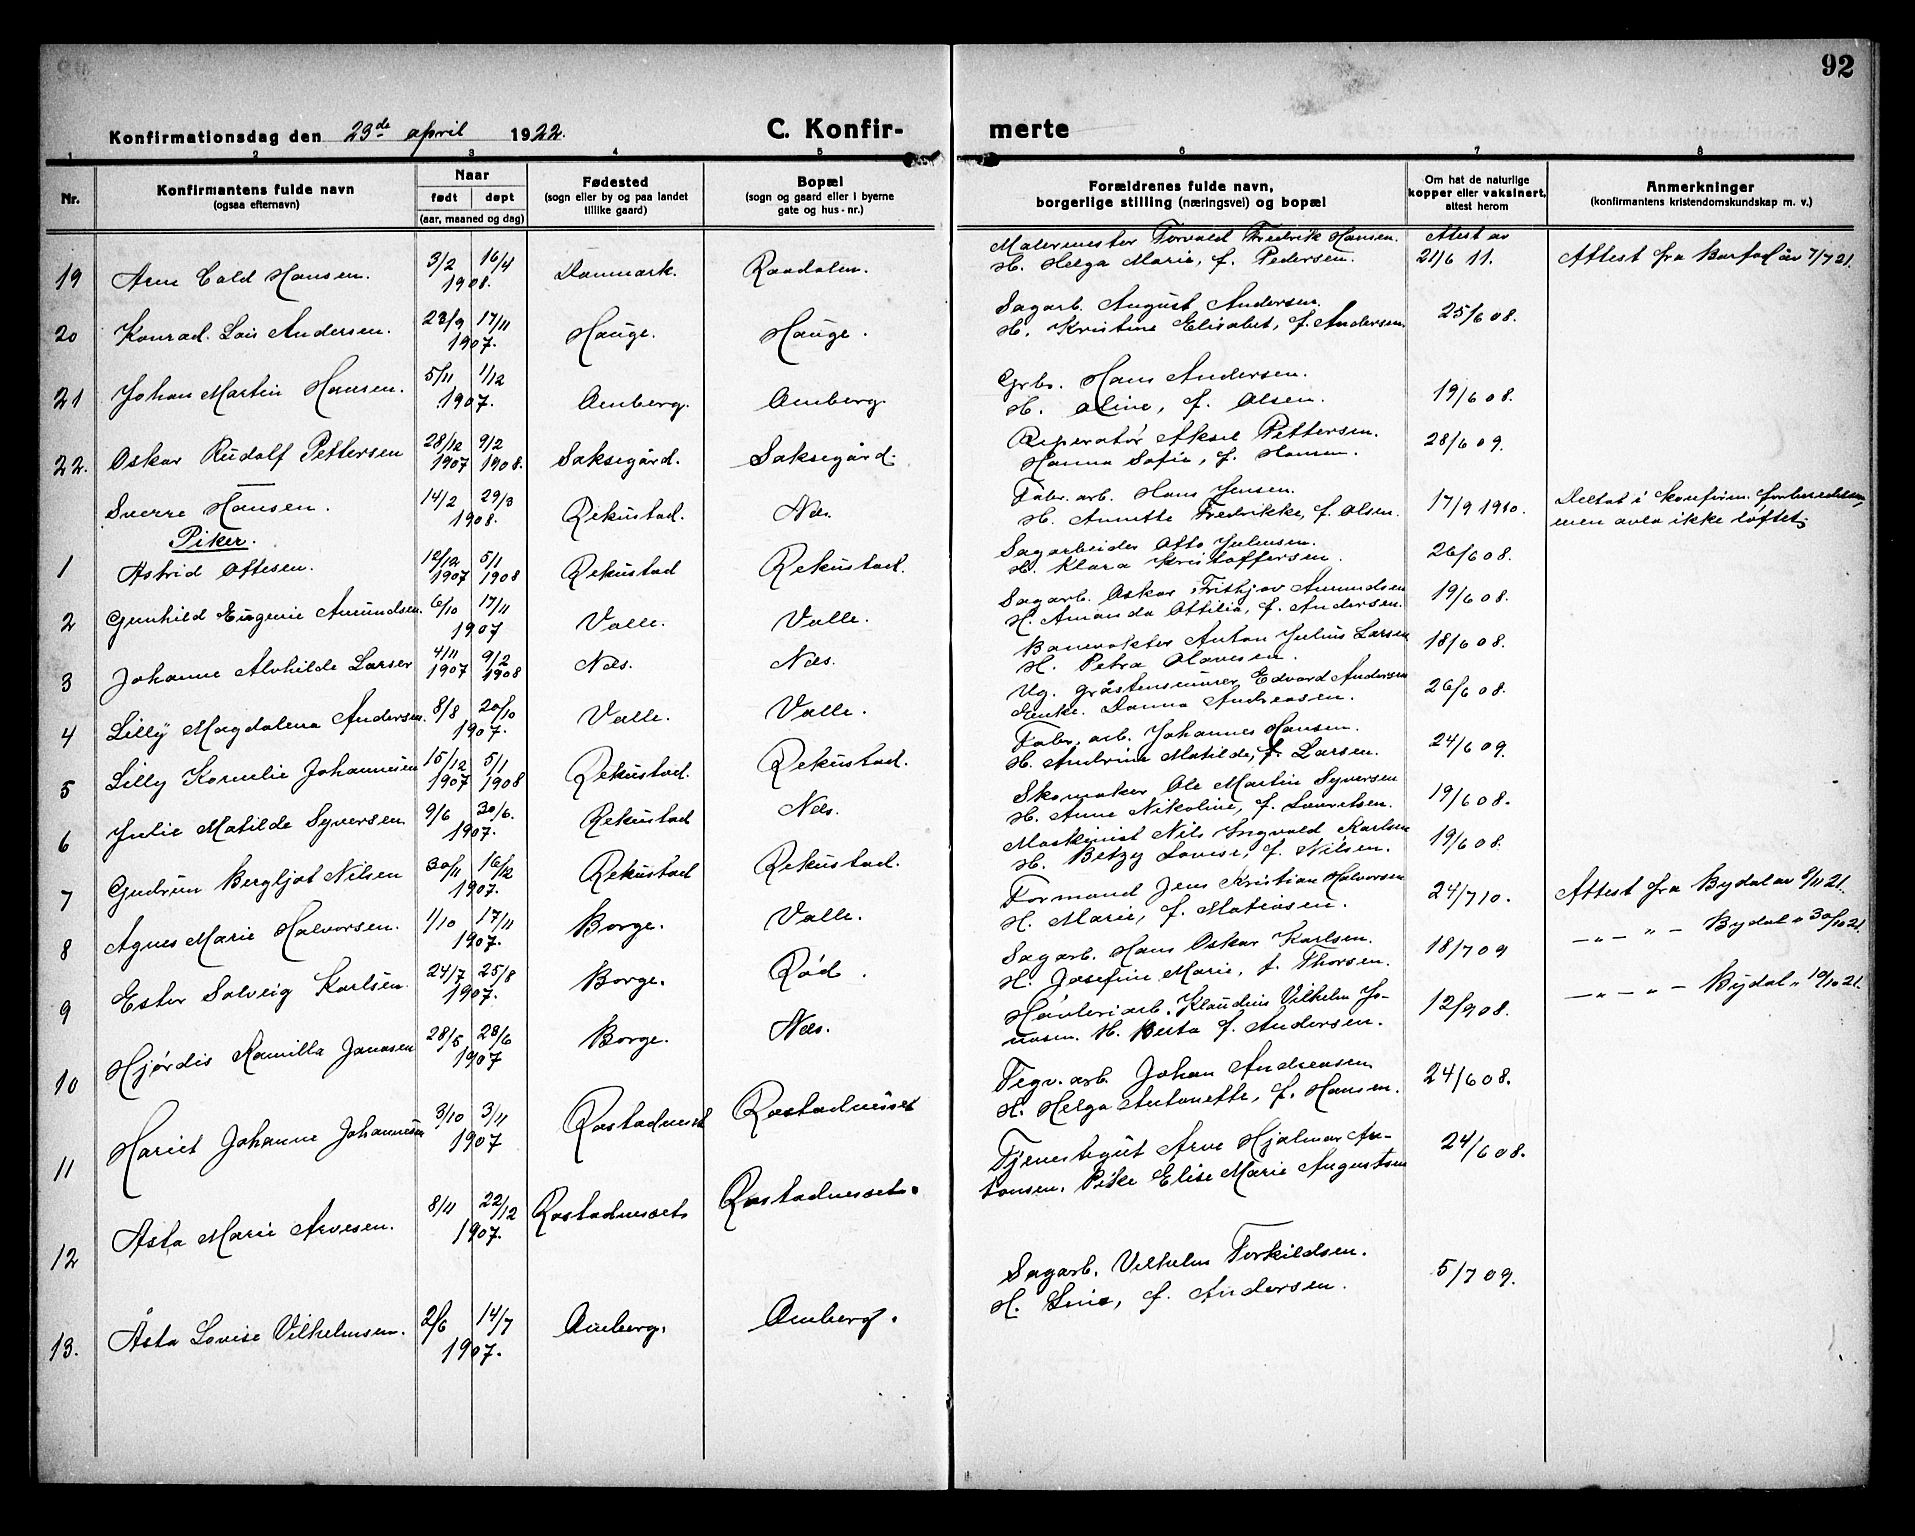 92
Konfirmationsdag den 23de april 1922.
C. Konfir-merte
1 2 3 4 5 6 7 8
Nr. | Konfirmantens fulde navn (ogsaa efternavn) | Naar født døpt (aar, maaned og dag) | Fødested (sogn eller by og paa landet tillike gaard) | Bopæl (sogn og gaard eller i byerne gate og hus-nr.) | Forældrenes fulde navn, borgerlige stilling (næringsvei) og bopæl | Om hat de naturlige kopper eller vaksinert, attest herom | Anmerkninger (konfirmantens kristendomskundskap m. v.)
19 | Arne Cold Hansen. | 3/2 16/4 1908. | Danmark. | Raadalen. | Malermester Torvald Fredrik Hansen. H. Helga Marie, f. Pedersen. | Attest av 21/6 11. | Attest fra av 7/7 21.
20 | Konrad Andersen. | 23/9 17/11 1907. | Hauge. | Hauge. | Sagarb. August Andersen. H. Kristine Elisabet, f. Andersen. | 25/6 08.
21 | Johan Martin Hansen. | 5/11 1/12 1907. | Amberg. | Amberg. | Grb. Hans Andersen. H. Aline, f. Olsen. | 19/6 08.
22. | Oskar Rudolf Pettersen | 28/12 1907 9/2 1908. | Saksegård. | Saksegård. | Reperatør Aksel Pettersen. Hanna Sofie, f. Hansen. | 28/6 09.
— | Sverre Hansen. | 14/2 29/3 1908. | Rekustad. | Næs. | Fabr. arb. Hans Jensen. H. Annette Fredrikke, f. Olsen. | 17/9 1910. | Deltat i konfirm. forberedelsen, men avla ikke løftet.
Piker.
1 | Astrid Ottesen. | 12/12 1907 5/1 1908 | Rekustad | Rekustad. | Sagarbeider Otto Julensen. H. Klara Kristoffersen. | 26/6 08.
2 | Gunhild Eugenie Amundsen. | 6/10 17/11 1907 | Valle. | Valle. | Sagarb. Oskar Frithjov Amundsen H. Amanda Ottilia, f. Andersen. | 19/6 08.
3 | Johanne Alvhilde Larsen | 4/11 1907 9/2 1908 | Næs. | Næs. | Banevokter Anton Julius Larsen H. Petra Olavesen. | 18/6 08.
4 | Lilly Magdalena Andersen. | 8/8 20/10 1907. | Valle. | Valle. | Ug. gråstensmurer Edvard Andersen Enke. Danna Andreasen. | 26/6 08.
5 | Lilly Kornelie Johannesen | 15/12 1907 5/1 1908 | Rekustad. | Rekustad. | Fabr. arb. Johannes Hansen. H. Andrine Matilde, f. Larsen. | 24/6 09.
6 | Julie Matilde Syversen | 9/6 30/6. 1907. | Rekustad | Næs. | Skomaker Ole Martin Syversen H. Anne Nikoline, f. Lauritsen. | 19/6 08.
7 | Gudrun Bergljot Nilsen | 30/11 16/12 1907. | Rekustad | Rekustad. | Maskinist Nils Ingvald Karlsen H. Betzy Lovise, f. Nilsen. | 19/6 08.
8 | Agnes Marie Halvorsen. | 1/10 17/11 1907. | Borge. | Valle. | Formand Jens Kristian Halvorsen H. Marie, f. Matiasen. | 24/7 10. | Attest fra Bydal av 8/11 21.
9 | Ester Solveig Karlsen. | 24/7 25/8 1907. | Borge. | Rød. | Sagarb. Hans Oskar Karlsen. H. Josefine Marie, f. Thorsen. | 18/7 09 | —„— „ — Bydal „ 30/10 21.
10 | Hjørdis Kamilla Jonasen | 28/5 28/6 1907 | Borge. | Næs. | Høvleriarb. Klaudius Vilhelm Jo-nasen. H. Berta f. Andersen. | 12/9 08. | —„— „ — Bydal „ 19/10 21.
11 | Hariet Johanne Johannesen | 3/10 3/11 1907 | Rostadneset | Rostadneset | Tegv. arb. Johan Andreasen H. Helga Antonette, f. Hansen. | 24/6 08.
12 | Asta Marie Arvesen. | 8/11 22/12 1907. | Rostadneset | Rostadneset. | Tjenestegut Arve Hjalmar An-tonsen. Pike Elise Marie Augustsen | 24/6 08.
13. | Åsta Lovise Vilhelmsen. | 2/6 14/7 1907. | Amberg. | Amberg. | Sagarb. Vilhelm Torkildsen. H. Line, f. Andersen. | 5/7 09.